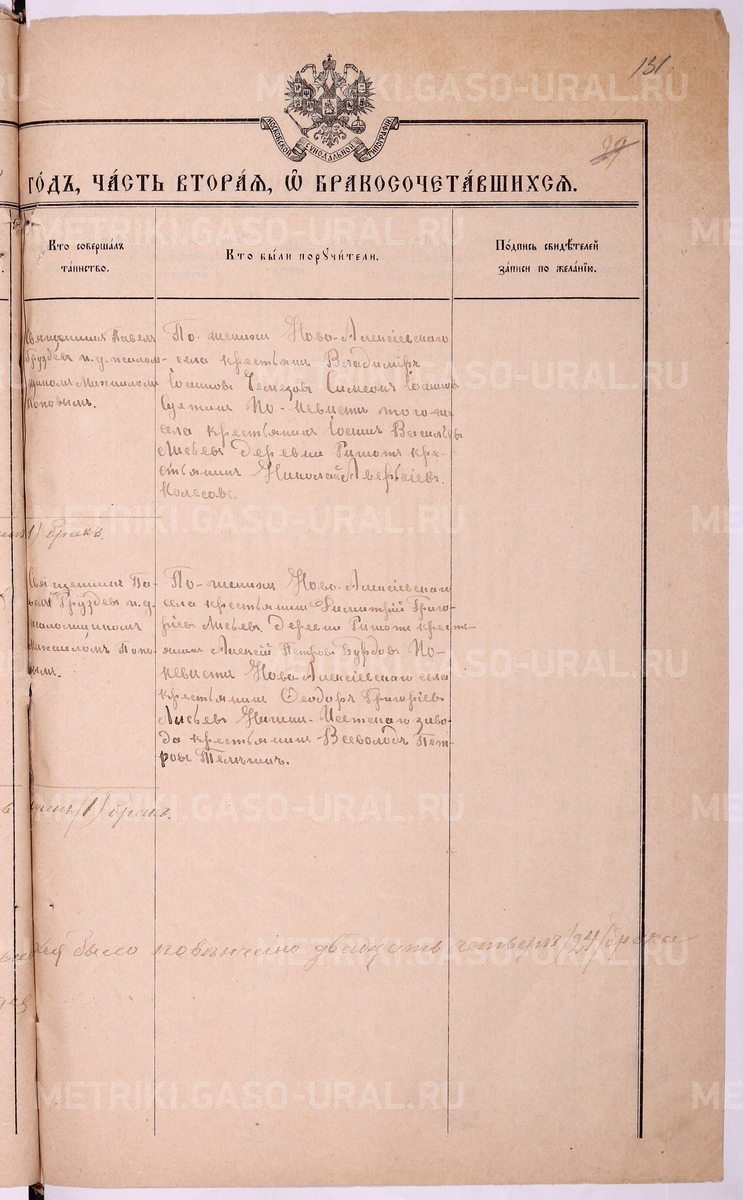 131.
29
МОСКОВСКОЙ СѴНОДАЛЬНОЙ ТИПОГРАФІИ
го́дъ, ча́сть втора́я, ѡ҆ бракосочета́вшихся.
Кто соверша́лъ
та́инство.
Кто бы́ли поручи́тели.
По́дпись свидѣ́телей
за́писи по жела́нїю.
Священникъ Павелъ
Груздевъ и. д. псалом-
щикомъ Михаиломъ
Поповымъ.
По женихѣ Ново-Алексіевскаго
села крестьяне Владиміръ
Іосифовъ Симеонъ Іосифовъ
По невѣстѣ того же
села крестьянинъ Іосифъ Васильевъ
Лисьевъ деревни кре-
стьянинъ Николай Аверкіевъ
Колесовъ.
1) бракъ.
Священникъ Па-
велъ Груздевъ и. д.
псаломщикомъ
Михаиломъ Попо-
вымъ.
По женихѣ Ново-Алексіевскаго
села крестьянинъ Димитрій Григо-
ріевъ Лисьевъ, деревни кресть-
янинъ Алексій Петровъ Бурдовъ По
невѣстѣ Ново-Алексіевскаго села
крестьянинъ Ѳеодоръ Григоріевъ
Лисьевъ Нижне-Исетскаго заво-
да крестьянинъ Всеволодъ Пет-
ровъ
одинъ (1) бракъ.
было повѣнчано двадцать четыре /24/ брака
METRIKI.GASO-URAL.RU